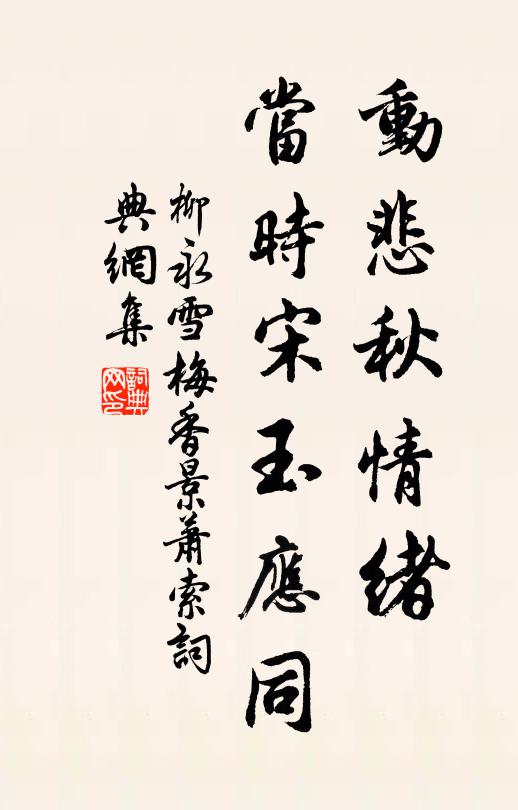 動悲秋情緒
當時宋玉應同
柳永雪梅香景蕭索詞
典網集
詞典
网印